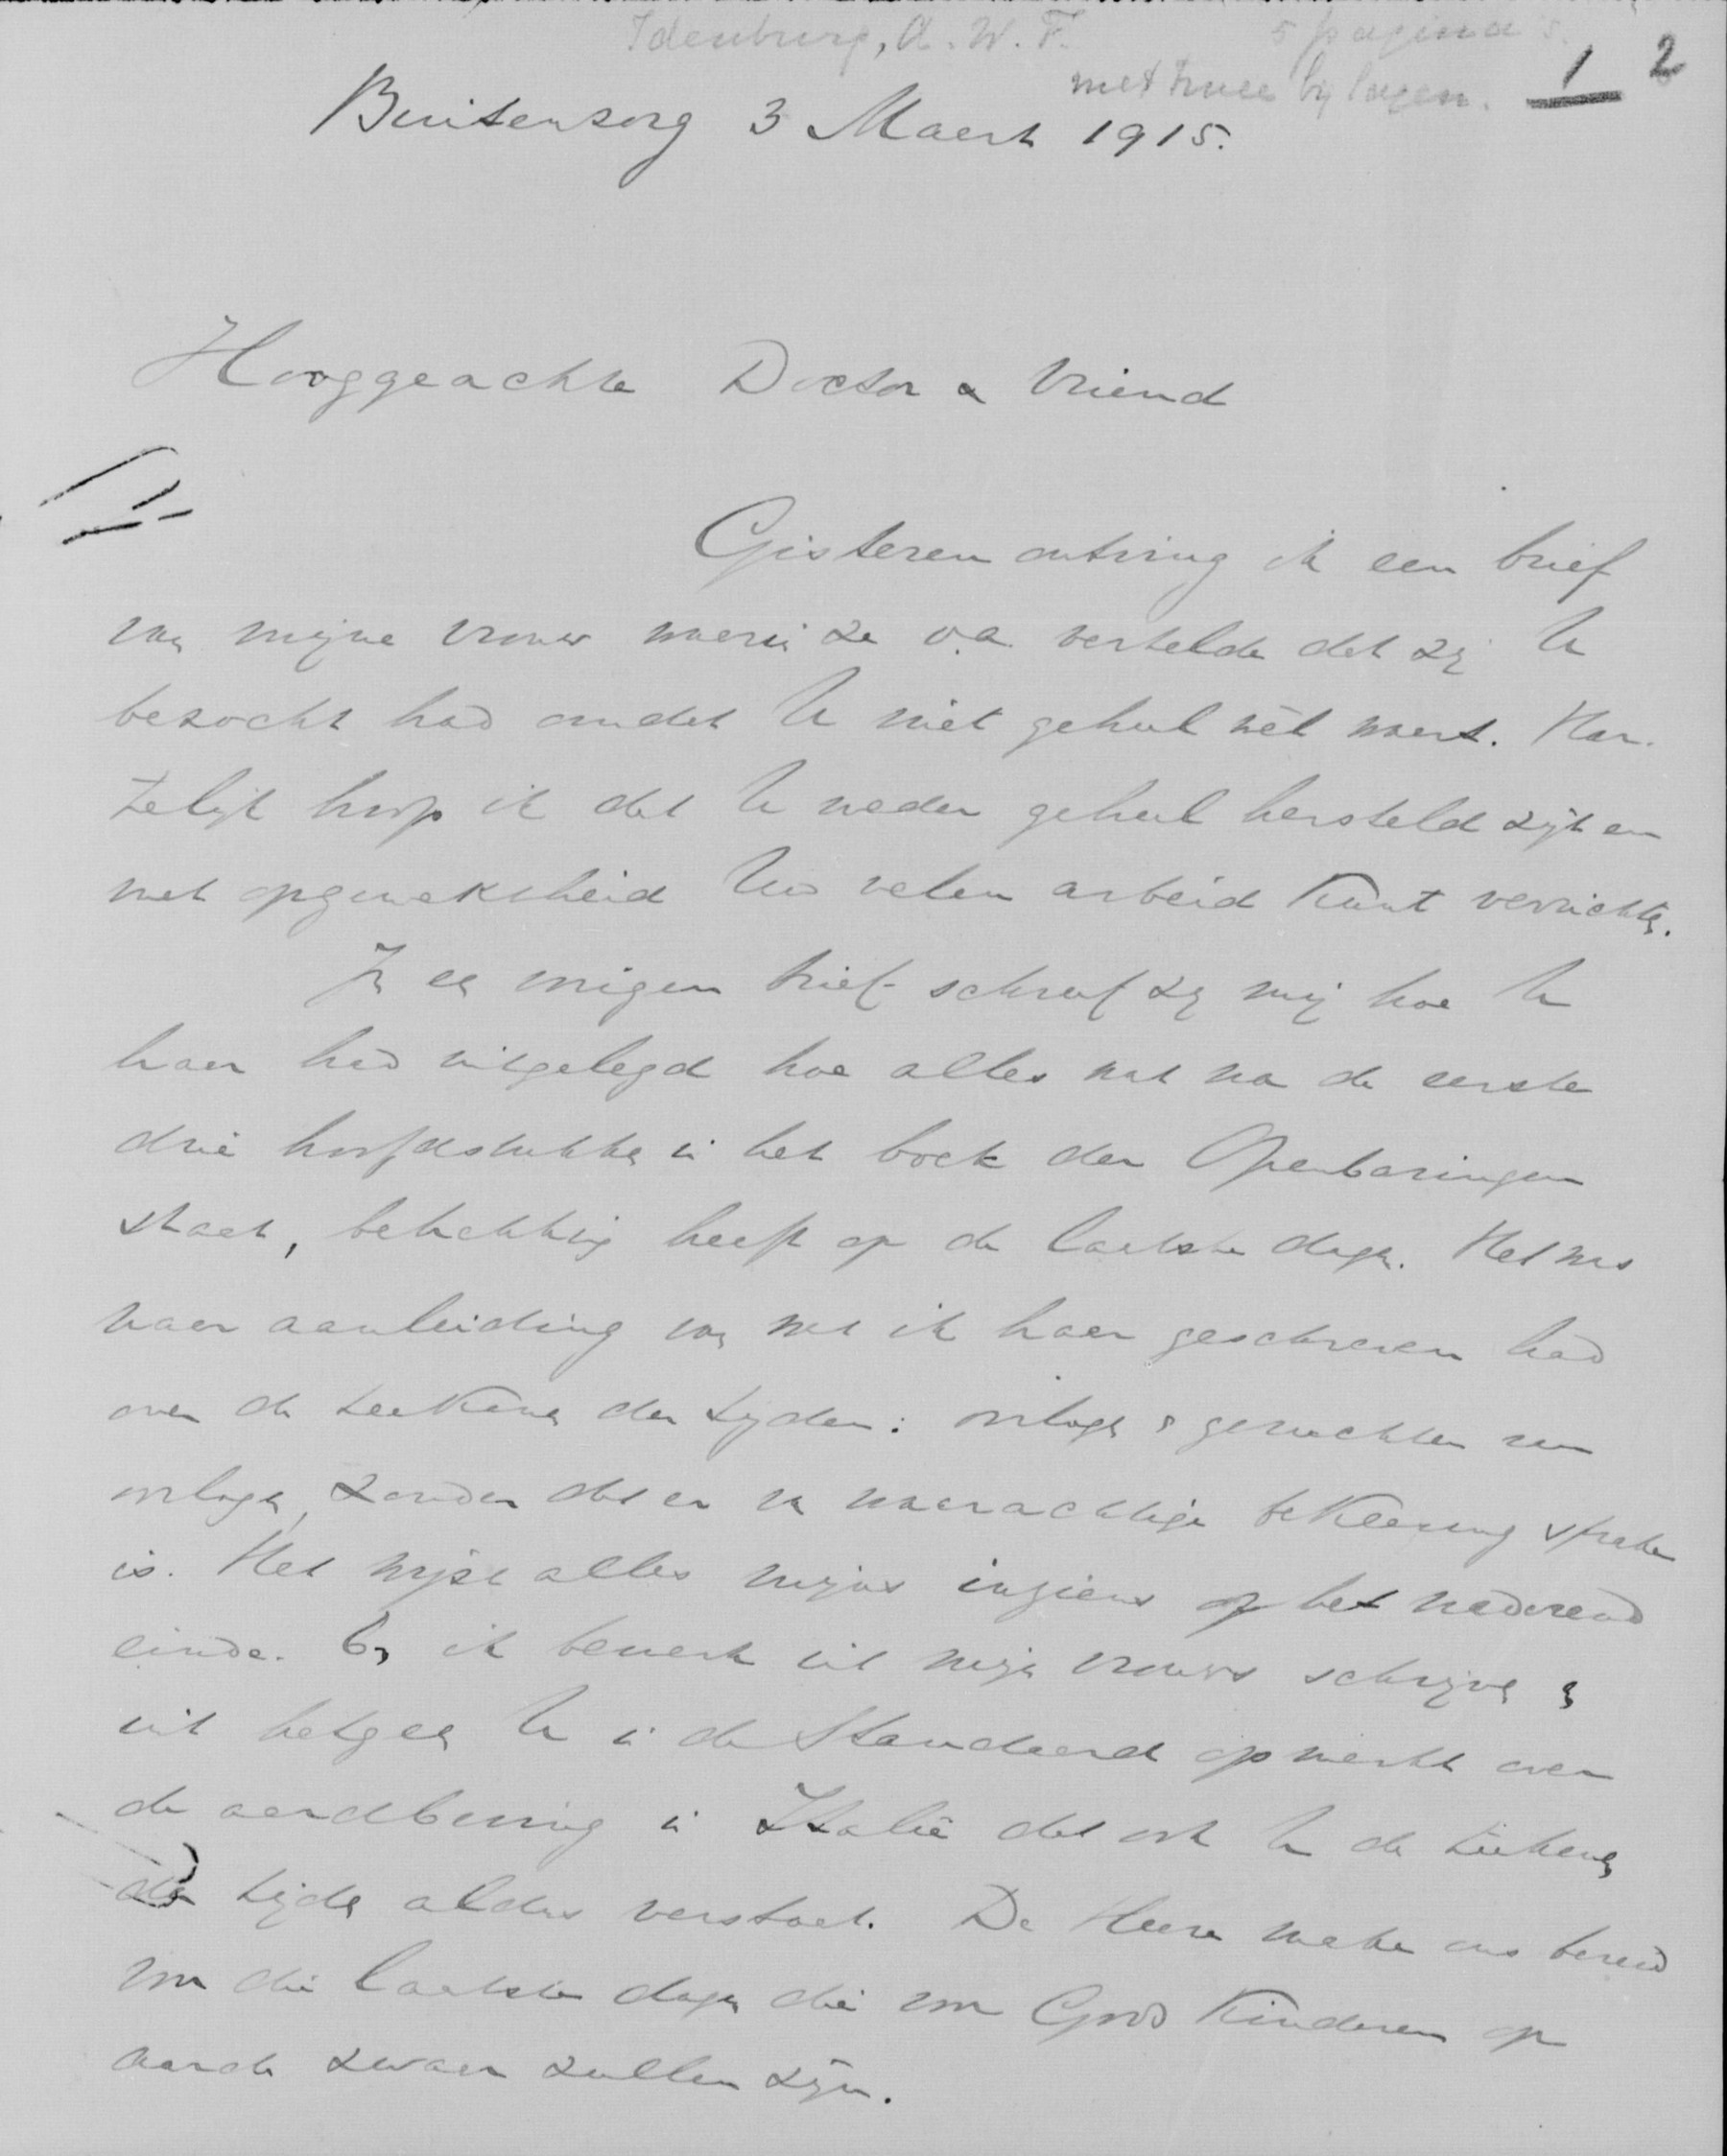 Idenburg, A.W.F. 5 pagina's.
met twee bijlagen. 1 2
Buitenzorg 3 Maart 1915.
Hooggeachte Doctor & Vriend
Gisteren ontving ik een brief
van mijne vrouw waarin ze o.a. vertelde dat zij U
bezocht had omdat U niet geheel wèl waart. Har-
telijk hoop ik dat U weder geheel hersteld zijt en
met opgewektheid Uw velen arbeid kunt verrichten.
In een vorigen brief schreef zij mij hoe U
haar had uitgelegd hoe alles wat na de eerste
drie hoofdstukken in het boek der Openbaringen
staat, betrekking heeft op de laatste dagen. Het was
naar aanleiding van wat ik haar geschreven had
over de teekenen der tijden: oorlogen & geruchten van
oorlogen, zonder dat er van waarachtige bekeering sprake
is. Het wijst alles mijns inziens op het naderend
einde. En ik bemerk uit mijn vrouws schrijven &
uit hetgeen U in de Standaard opmerkt over
de aardbeving in Italië dat ook U de teekenen
der tijden aldus verstaat. De Heere make ons bereid
voor die laatste dagen die voor Gods kinderen op
aarde zwaar zullen zijn.